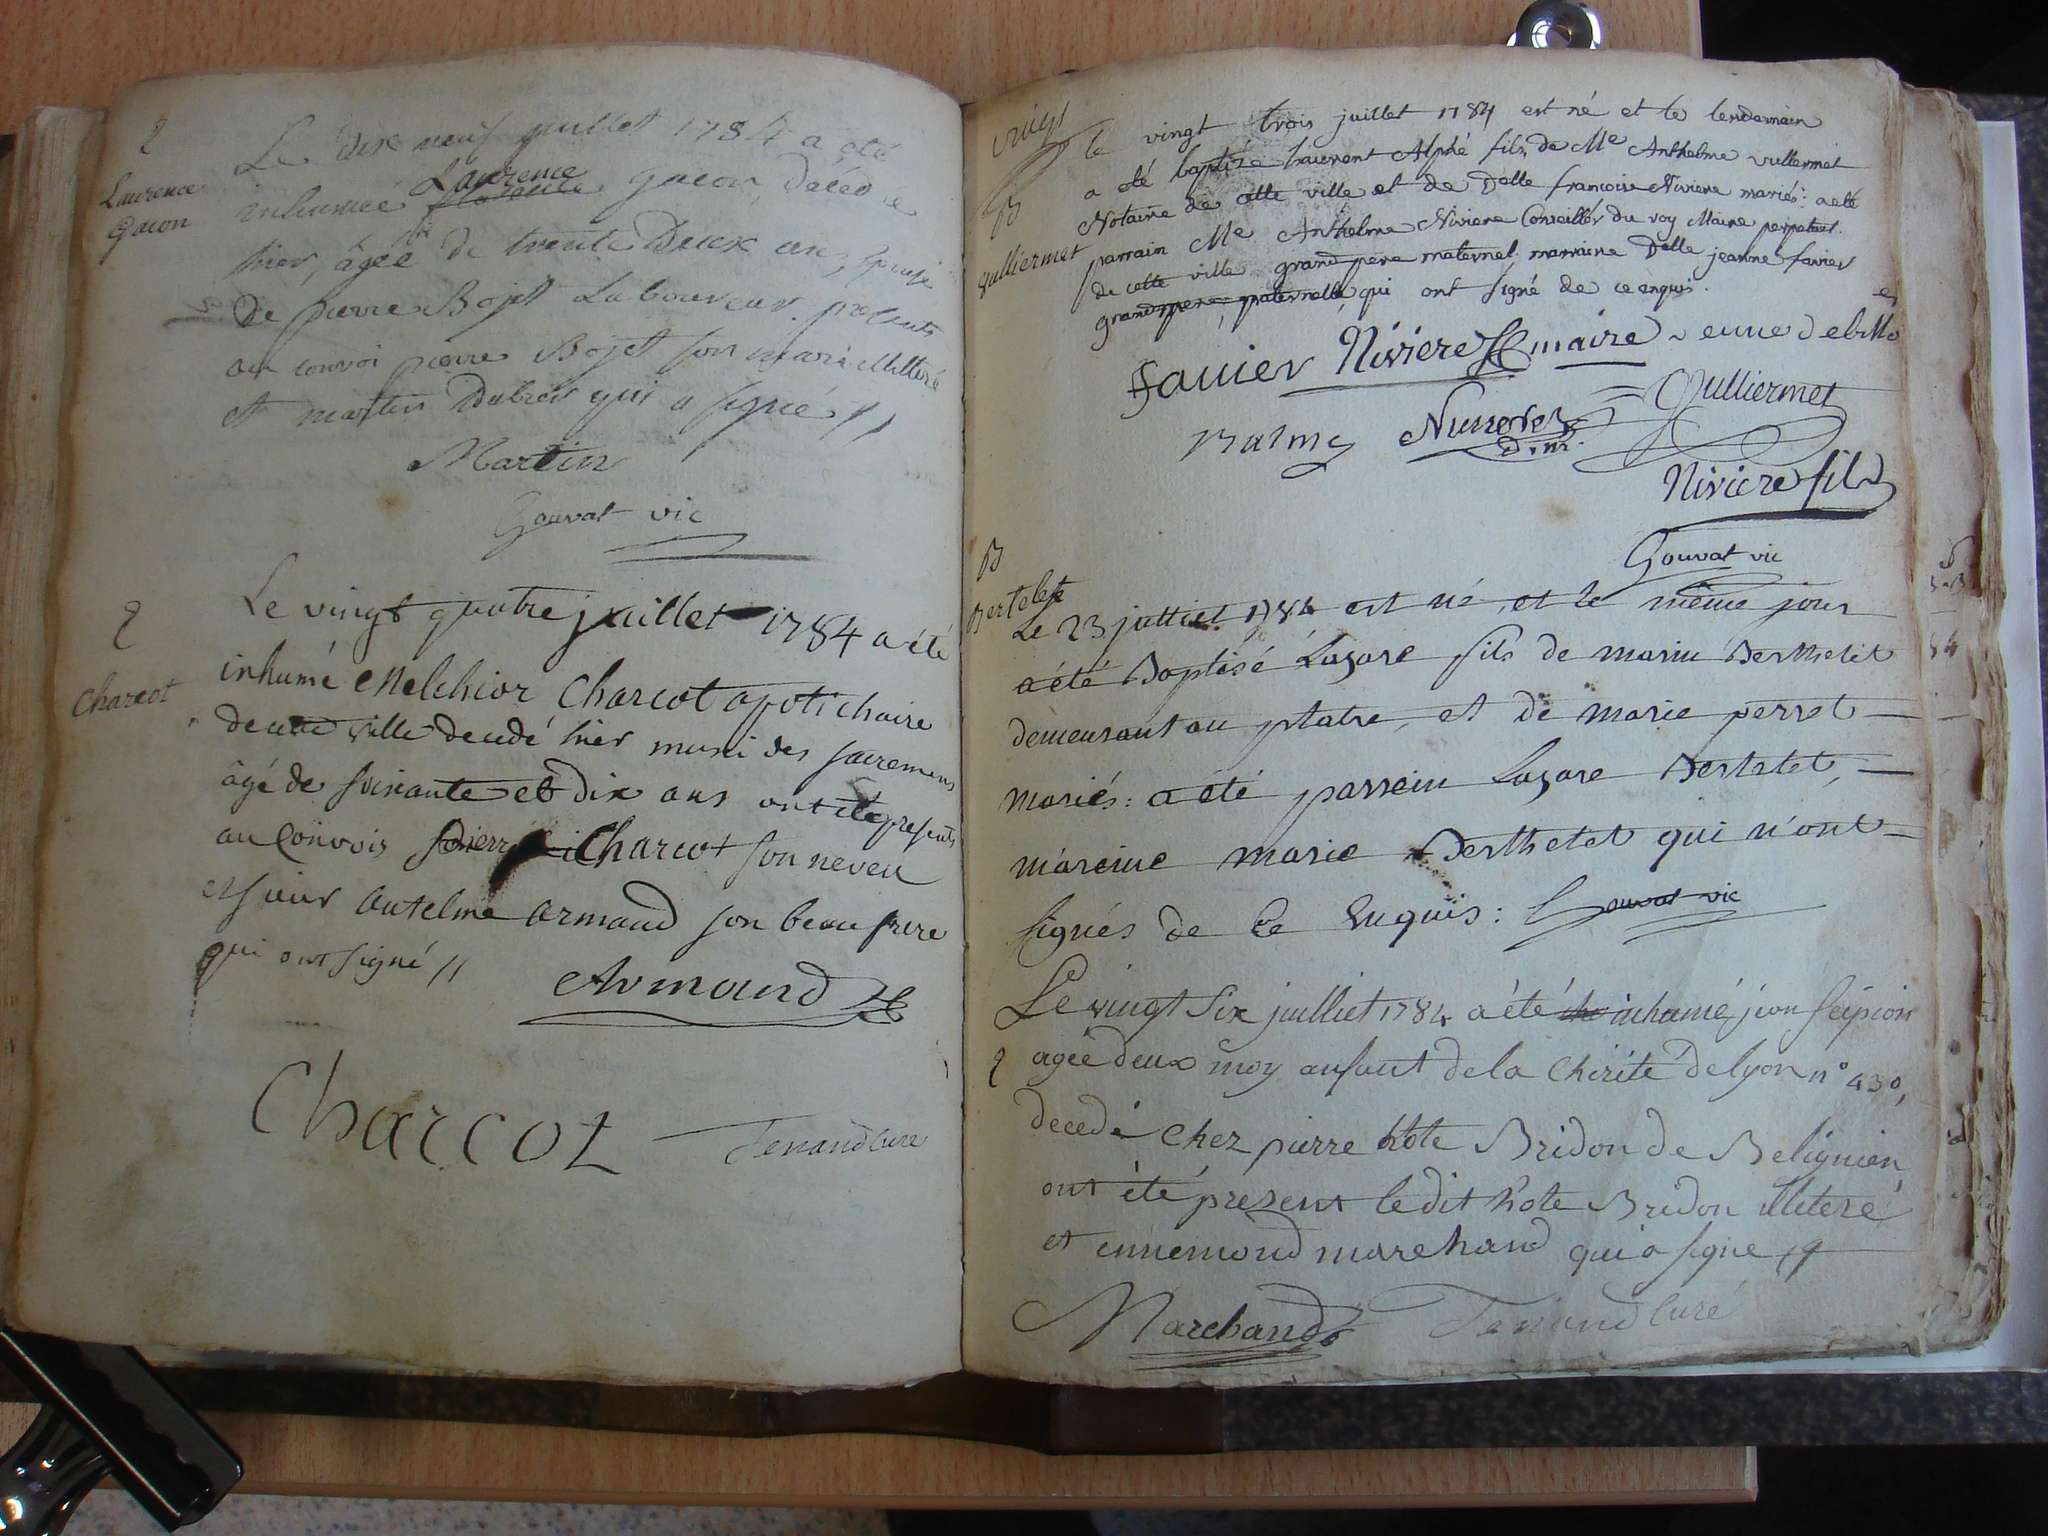 Laurence
Gacon
Le dix neuf juillet 1784 a eté
inhumée Laurence gacon, décédée
hier, âgée de trente Deux an, epouse
De pierre Bojet Laboureur. presents
au convoi pierre Bojet son mari illiteré
et martin Dubreit qui a signé //
Martin
Gouvat vic
Charcot
Le vingt quatre juillet 1784 a été
inhumé Melchior Charcot apotichaire
de cette ville decedé hier muni des sacremens
âgé de soixante et dix ans ont été presents
au Convois Charcot son neveu
et sieur antelme armand son beau frere
qui ont signé //
Armand
Charcot Tenand Curé
B
Vulliermet
le vingt trois juillet 1784 est né et le lendemain
a été baptisé Laurent Alphé fils de Me Anthelme vullermet
Notaire de cette ville et de Delle francoise Niviere mariés: a eté
parrain Me Anthelme Niviere Conseiller du roy Maire perpetuel
de cette ville grand pere maternel, marraine Delle jeanne favier
qui ont signé de ce enquis.
favier Niviere maire veuve
Vulliermet
Niviere fils
Gouvat vic
B
Bertelet
Le 23 juilliet 1784 est né, et le même jour
a été Baptisé Lazare fils de Berthelet
demeurant au platre, et de marie perret
mariés: a été parrein Lazare Bertelet,
mareine marie Berthelet qui n'ont
signés de Ce Enquis: Gouvat vic
Le vingt six juilliet 1784 a été inhumé jean scipion
agée deux moy anfant de la Chirité de lyon n° 430,
decedé chez pierre hôte Bridon de Belignien
ont été present le dit hôte Bridon illiteré
et ennemond marchand qui a signe
Marchand Tenand Curé